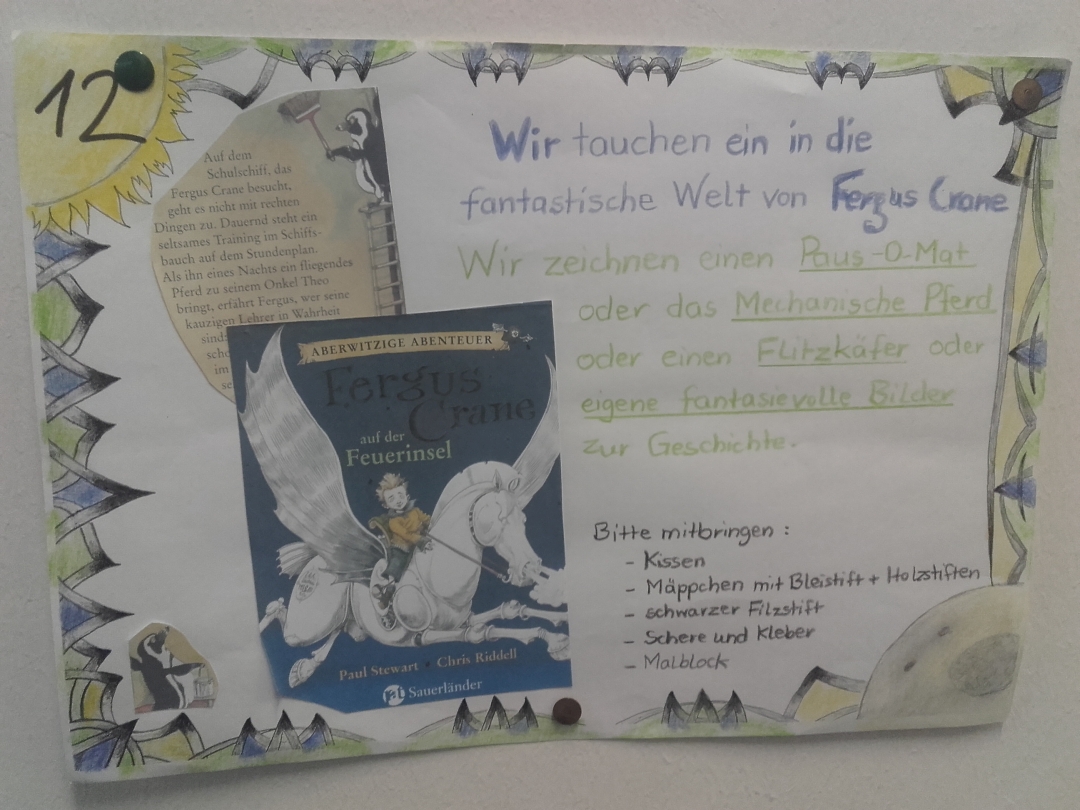 12
Auf dem
Schulschiff, das
Fergus Crane besucht,
geht es nicht mit rechten
Dingen zu. Dauernd steht ein
seltsames Training im Schiffs-
bauch auf dem Stundenplan.
Als ihn eines Nachts ein fliegendes
Pferd zu seinem Onkel Theo
bringt, erfährt Fergus, wer seine
kauzigen Lehrer in Wahrheit
sind
im
Wir tauchen ein in die
fantastische Welt von Fergus Crane
Wir zeichnen einen Paus-O-Mat
oder das Mechanische Pferd
oder einen Flitzkäfer oder
eigene fantasievolle Bilder
zur Geschichte.
ABERWITZIGE ABENTEUER
Fergus
Crane
auf der
Feuerinsel
Paul Stewart • Chris Riddell
Sauerländer
Bitte mitbringen :
- Kissen
- Mäppchen mit Bleistift + Holzstiften
- schwarzer Filzstift
- Schere und Kleber
- Malblock